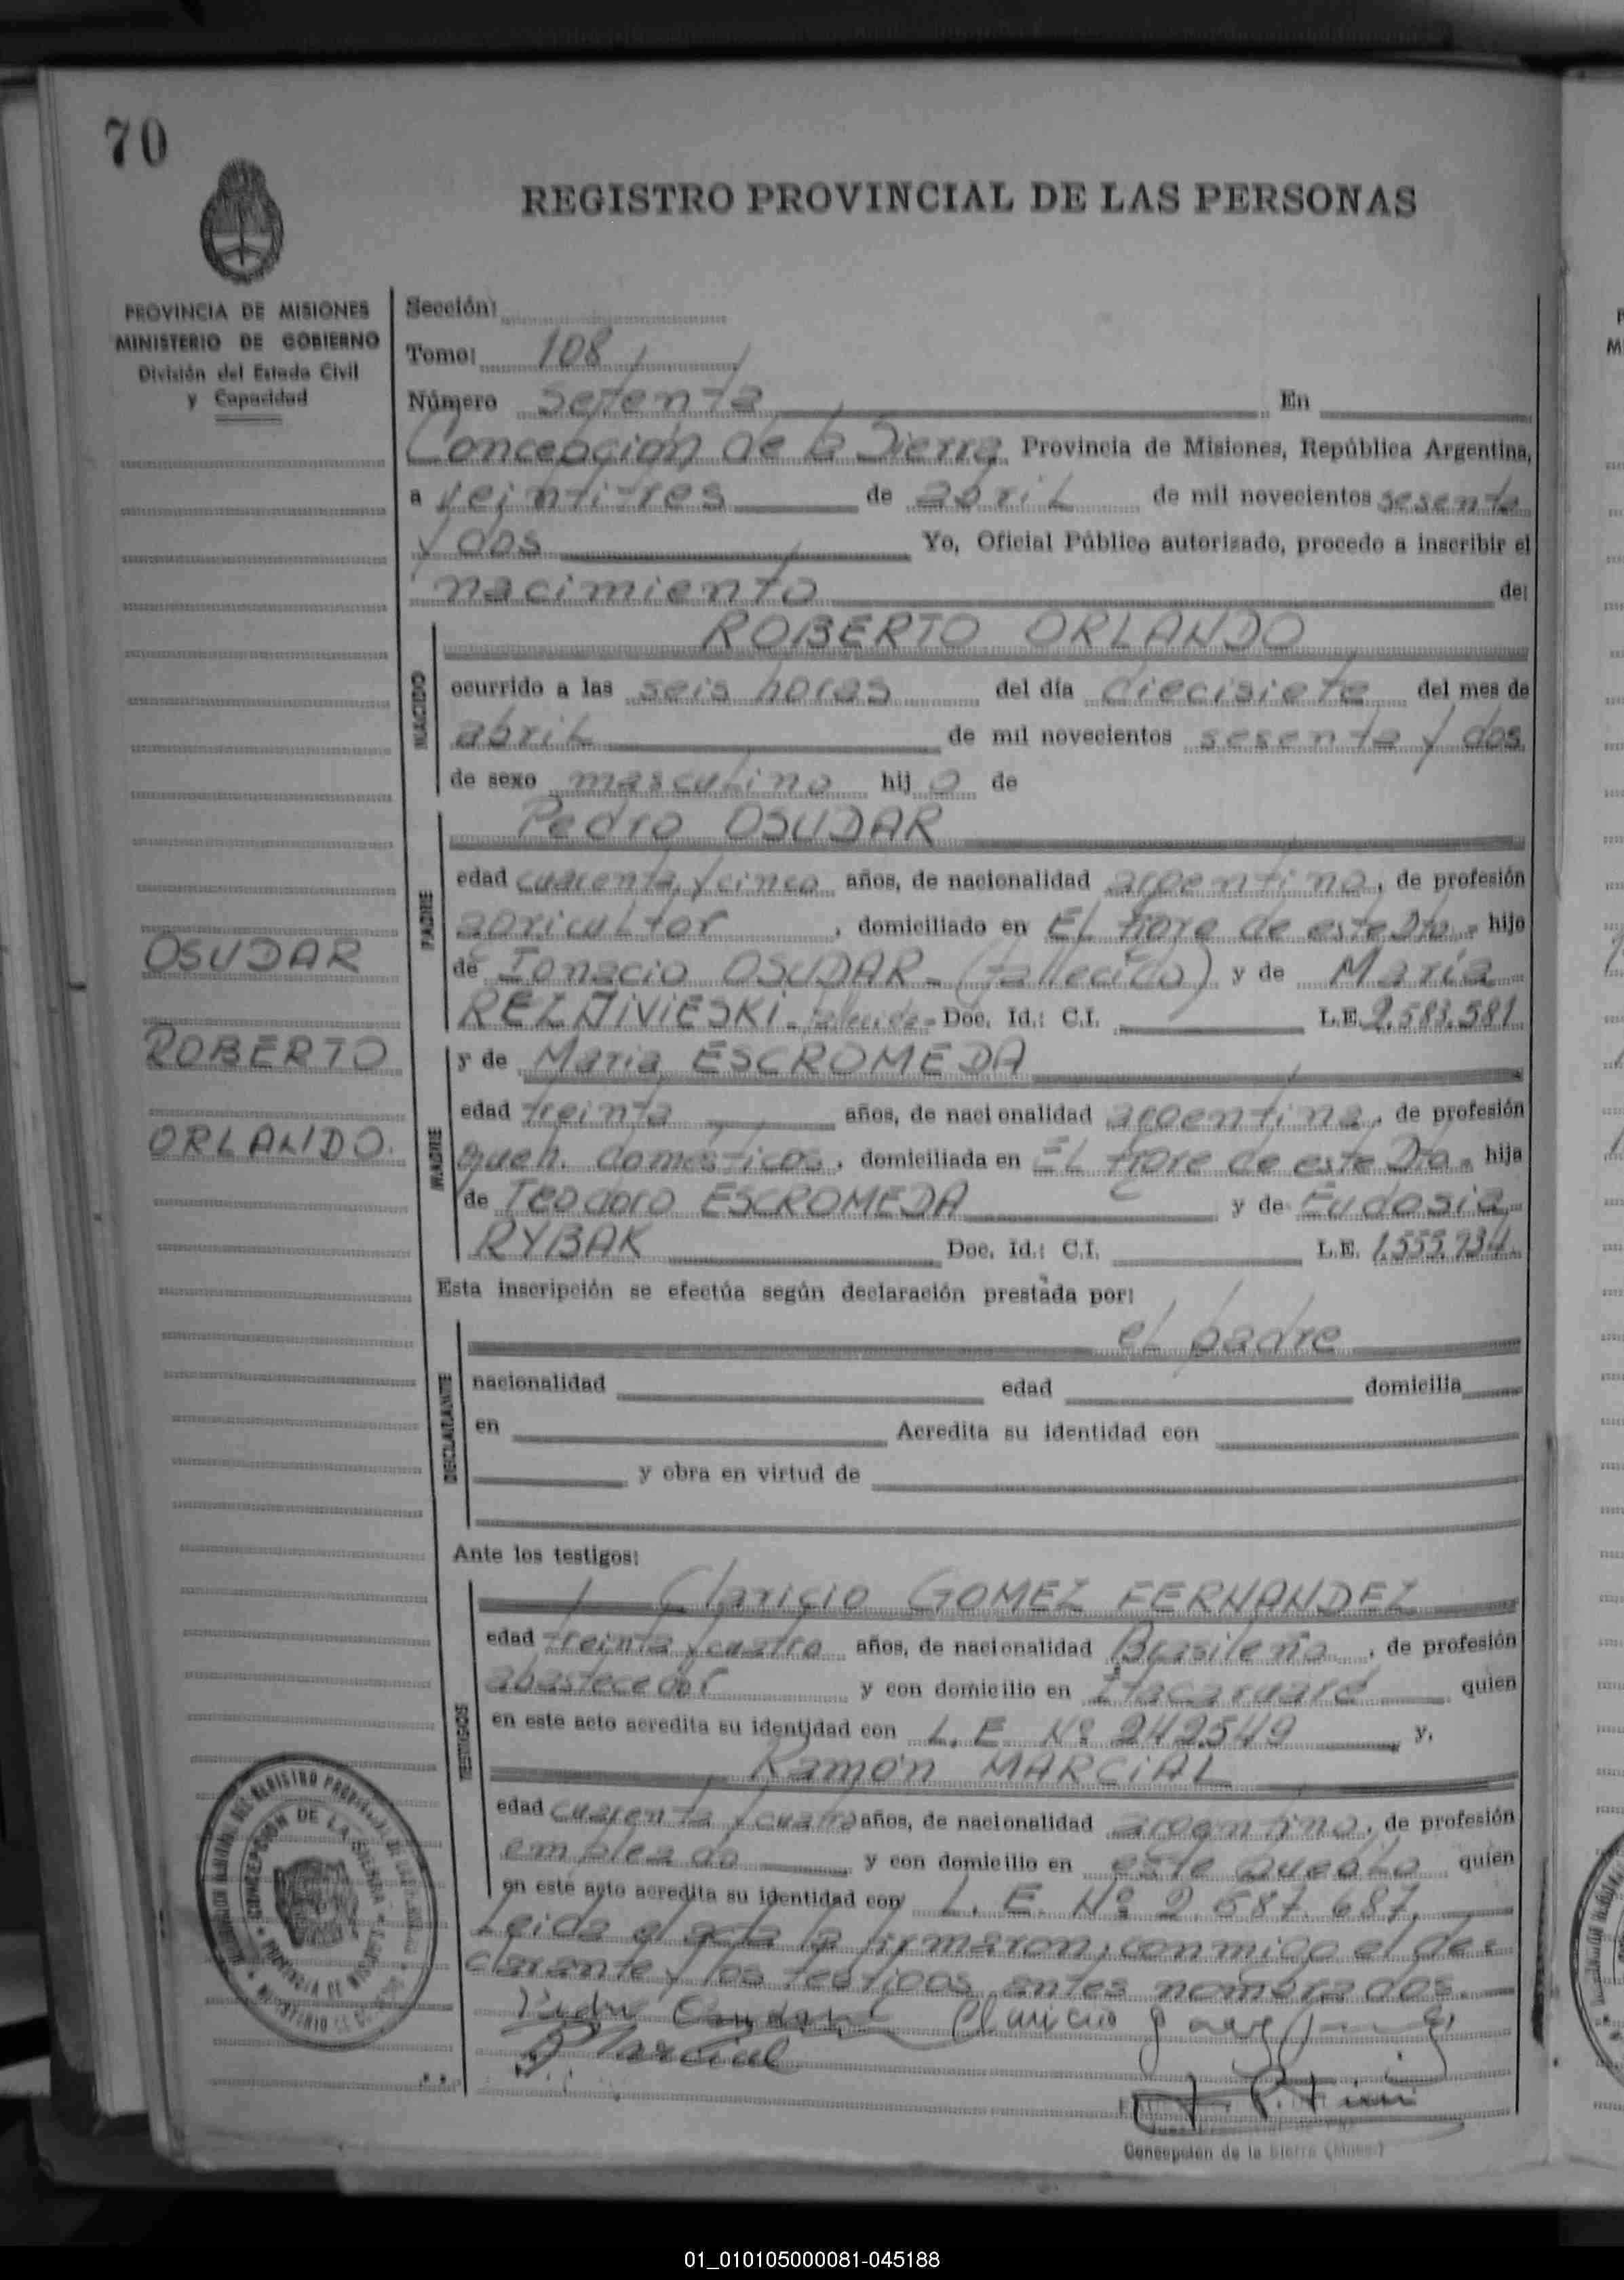 70
REGISTRO PROVINCIAL DE LAS PERSONAS
PROVINCIA DE MISIONES
MINISTERIO DE GOBIERNO
División del Estado Civil
y Capacidad
Sección:
Tomo: 108
Número setenta En
Concepción de la Sierra Provincia de Misiones, República Argentina,
a veintitres de abril de mil novecientos sesenta
y dos Yo, Oficial Público autorizado, procedo a inscribir el
nacimiento de:
NACIDO
ROBERTO ORLANDO
ocurrido a las seis horas del día diecisiete del mes de
abril de mil novecientos sesenta y dos
de sexo masculino hijo de
PADRE
Pedro OSUDAR
edad cuarenta y cinco años, de nacionalidad argentino, de profesión
agricultor, domiciliado en El tigre de este Dto. hijo
de Ignacio OSUDAR - (fallecido) y de María
fallecida - Doc. Id.: C.I. L.E. 2.583.581
OSUDAR
ROBERTO
ORLANDO.
MADRE
y de Maria ESCROMEDA
edad treinta años, de nacionalidad argentina, de profesión
queh. domésticos, domiciliada en El tigre de este Dto. hija
de Teodoro ESCROMEDA y de Eudosia
RYBAK Doc. Id.: C.I. L.E. 1.555.734.
Esta inscripción se efectúa según declaración prestada por:
DECLARANTE
el padre
nacionalidad edad domicilia
en Acredita su identidad con
y obra en virtud de
Ante los testigos:
TESTIGOS
Claricio GOMEZ FERNANDEZ
edad treinta y cuatro años, de nacionalidad Brasileño, de profesión
abastecedor y con domicilio en Itacaruaré quien
en este acto acredita su identidad con L. E. Nº 242549 y,
Ramón MARCIAL
edad cuarenta y cuatro años, de nacionalidad argentino, de profesión
empleado y con domicilio en este pueblo quien
en este acto acredita su identidad con L. E. Nº 2.687.687.
Leida el acta la firmaron, conmigo el de-
clarante y los testigos antes nombrados.
Pedro Osudar Claricio
R Marcial
CONCEPCION DE LA SIERRA
PROVINCIA DE MISIONES
Concepción de la Sierra (Mnes.)
01_010105000081-045188